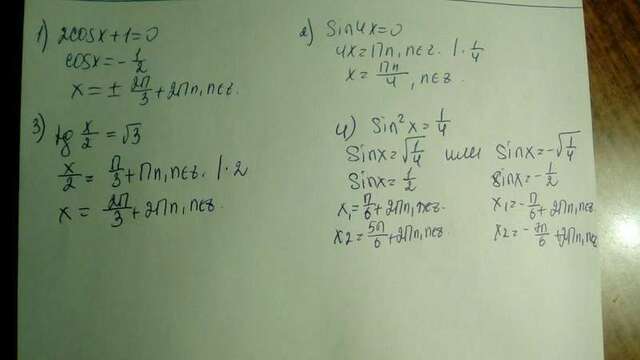 1) 2cosx+1=0
cosx=-1/2
x=± 2π/3 +2πn, n∈z.
2) Sin4x=0
4x=πn, n∈z. |·1/4
x=πn/4, n∈z.
3) tg x/2 = √3
x/2 = π/3+πn, n∈z. |·2
x= 2π/3+2πn, n∈z.
4) Sin²x=1/4
Sinx=√1/4 или Sinx=-√1/4
Sinx=1/2 Sinx=-1/2
x₁=π/6+2πn, n∈z. x₁=-π/6+2πn, n∈z.
x2=5π/6+2πn, n∈z. x₂=-7π/6+2πn, n∈z